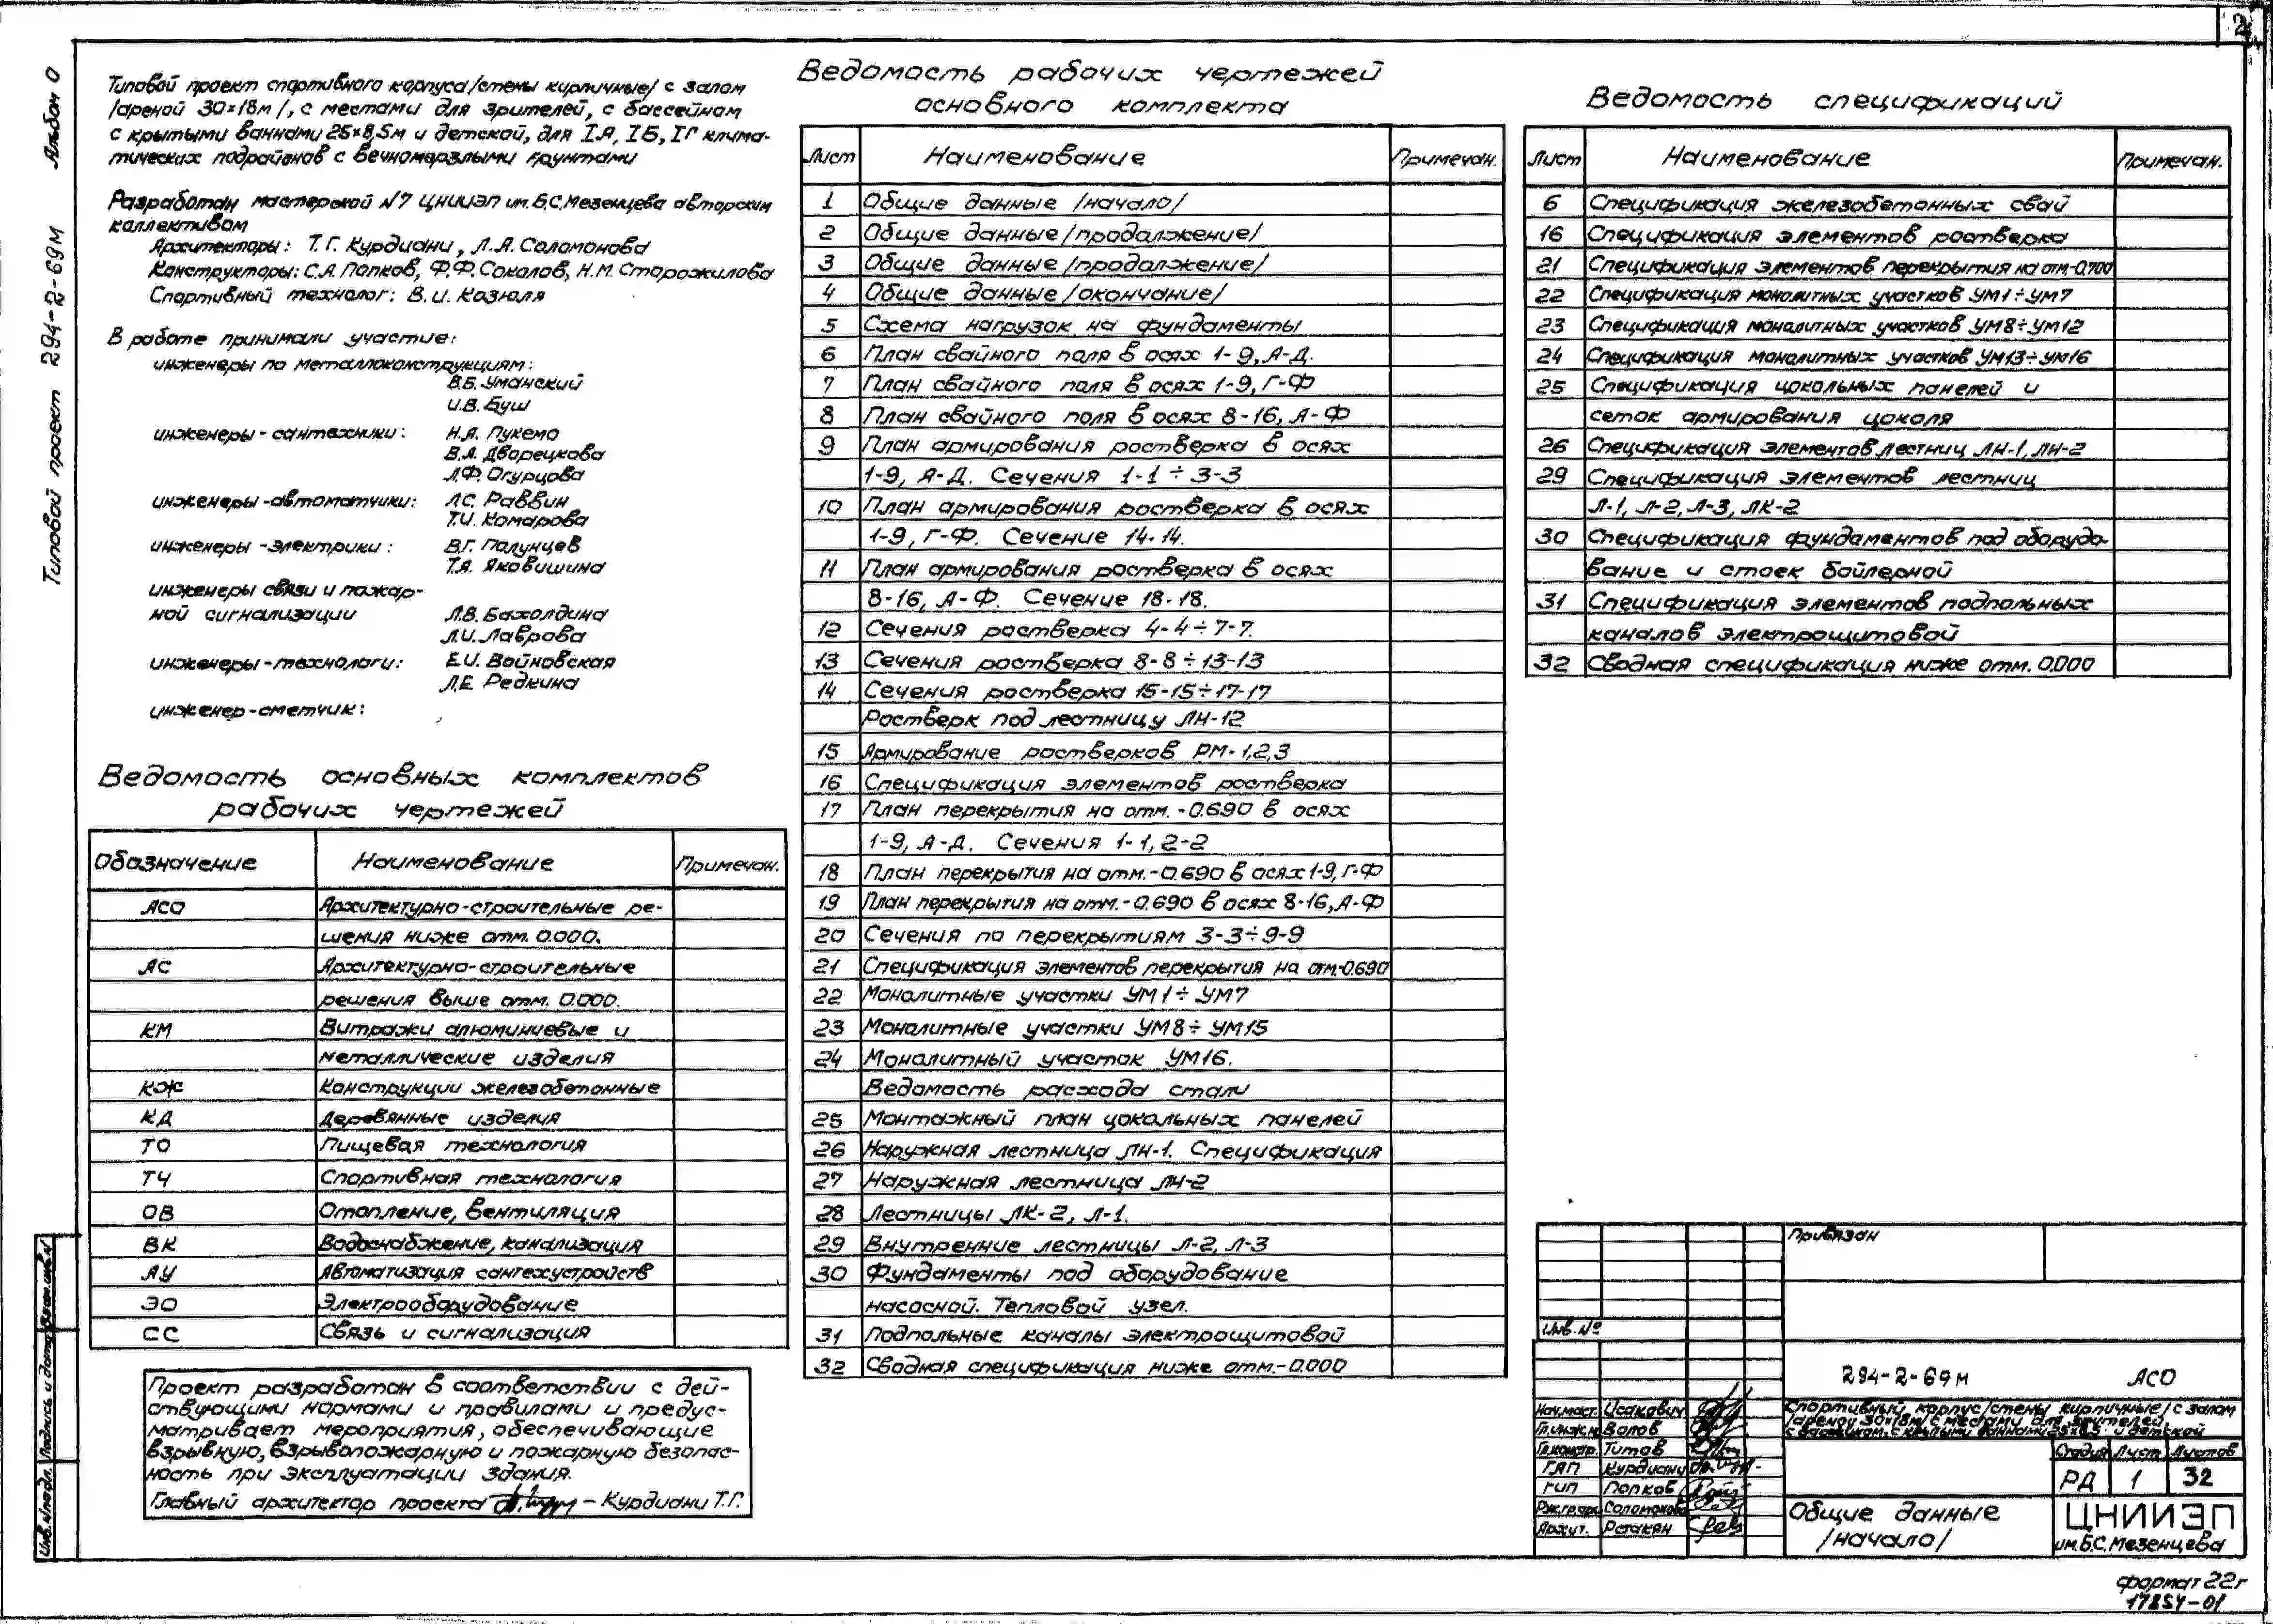 2
Альбом 0
Типовой проект 294-2-69м
Типовой проект спортивного корпуса /стены кирпичные/ с залом
/ареной 30×18м/, с местами для зрителей, с бассейном
с крытыми ваннами 25×8,5м и детской, для IА, IБ, IГ клима-
тических подрайонов с вечномерзлыми грунтами
Разработан мастерской №7 ЦНИИЭП им. Б.С. Мезенцева авторским
коллективом
Архитекторы: Т.Г. Курдиани, Л.А. Соломонова
Конструкторы: С.А. Попков, Ф.Ф. Соколов, Н.М. Сторожилова
Спортивный технолог: В.И. Козюля
В работе принимали участие:
инженеры по металлоконструкциям:
В.Б. Уманский
И.В. Буш
инженеры-сантехники: Н.А. Пукемо
В.А. Дворецкова
Л.Ф. Огурцова
инженеры-автоматчики: Л.С. Раввин
Т.И. Комарова
инженеры-электрики: В.Г. Полунцев
Т.А. Яковишина
инженеры связи и пожар-
ной сигнализации Л.В. Бахолдина
Л.И. Лаврова
инженеры-технологи: Е.И. Войновская
Л.Е. Редкина
инженер-сметчик:
Ведомость основных комплектов
рабочих чертежей
Обозначение Наименование Примечан.
АСО Архитектурно-строительные ре-
шения ниже отм. 0.000.
АС Архитектурно-строительные
решения выше отм. 0.000.
КМ Витражи алюминиевые и
металлические изделия
КЖ Конструкции железобетонные
КД Деревянные изделия
ТО Пищевая технология
ТЧ Спортивная технология
ОВ Отопление, вентиляция
ВК Водоснабжение, канализация
АУ Автоматизация сантехустройств
ЭО Электрооборудование
СС Связь и сигнализация
Проект разработан в соответствии с дей-
ствующими нормами и правилами и предус-
матривает мероприятия, обеспечивающие
взрывную, взрывопожарную и пожарную безопас-
ность при эксплуатации здания.
Главный архитектор проекта – Курдиани Т.Г.
Ведомость рабочих чертежей
основного комплекта
Лист Наименование Примечан.
1 Общие данные /начало/
2 Общие данные /продолжение/
3 Общие данные /продолжение/
4 Общие данные /окончание/
5 Схема нагрузок на фундаменты
6 План свайного поля в осях 1-9, А-Д.
7 План свайного поля в осях 1-9, Г-Ф
8 План свайного поля в осях 8-16, А-Ф
9 План армирования ростверка в осях
1-9, А-Д. Сечения 1-1 ÷ 3-3
10 План армирования ростверка в осях
1-9, Г-Ф. Сечение 14-14.
11 План армирования ростверка в осях
8-16, А-Ф. Сечение 18-18.
12 Сечения ростверка 4-4÷7-7.
13 Сечения ростверка 8-8÷13-13
14 Сечения ростверка 15-15÷17-17
Ростверк под лестницу ЛН-12
15 Армирование ростверков РМ-1,2,3
16 Спецификация элементов ростверка
17 План перекрытия на отм. -0.690 в осях
1-9, А-Д. Сечения 1-1, 2-2
18 План перекрытия на отм. -0.690 в осях 1-9, Г-Ф
19 План перекрытия на отм. -0.690 в осях 8-16, А-Ф
20 Сечения по перекрытиям 3-3÷9-9
21 Спецификация элементов перекрытия на отм. -0.690
22 Монолитные участки УМ1÷УМ7
23 Монолитные участки УМ8÷УМ15
24 Монолитный участок УМ16.
Ведомость расхода стали
25 Монтажный план цокольных панелей
26 Наружная лестница ЛН-1. Спецификация
27 Наружная лестница ЛН-2
28 Лестницы ЛК-2, Л-1.
29 Внутренние лестницы Л-2, Л-3
30 Фундаменты под оборудование
насосной. Тепловой узел.
31 Подпольные каналы электрощитовой
32 Сводная спецификация ниже отм. -0.000
Ведомость спецификаций
Лист Наименование Примечан.
6 Спецификация железобетонных свай
16 Спецификация элементов ростверка
21 Спецификация элементов перекрытия на отм. -0.700
22 Спецификация монолитных участков УМ1÷УМ7
23 Спецификация монолитных участков УМ8÷УМ12
24 Спецификация монолитных участков УМ13÷УМ16
25 Спецификация цокольных панелей и
сеток армирования цоколя
26 Спецификация элементов лестниц ЛН-1, ЛН-2
29 Спецификация элементов лестниц
Л-1, Л-2, Л-3, ЛК-2
30 Спецификация фундаментов под оборудо-
вание и стоек бойлерной
31 Спецификация элементов подпольных
каналов электрощитовой
32 Сводная спецификация ниже отм. 0.000
Привязан
Инв. №
294-2-69м АСО
Спортивный корпус /стены кирпичные/ с залом
/ареной 30×18м/ с местами для зрителей,
с бассейном, с крытыми ваннами 25×8,5 и детской
Нач.маст. Исакович
Гл.инж.м Волов
Гл.констр. Титов
ГАП Курдиани
ГИП Попков
Рук.гр.арх. Соломонова
Архит. Ретакян
Стадия Лист Листов
РД 1 32
Общие данные
/начало/
ЦНИИЭП
им. Б.С. Мезенцева
Инв. № подл. Подпись и дата Взам. инв. №
формат 22г
17854-01